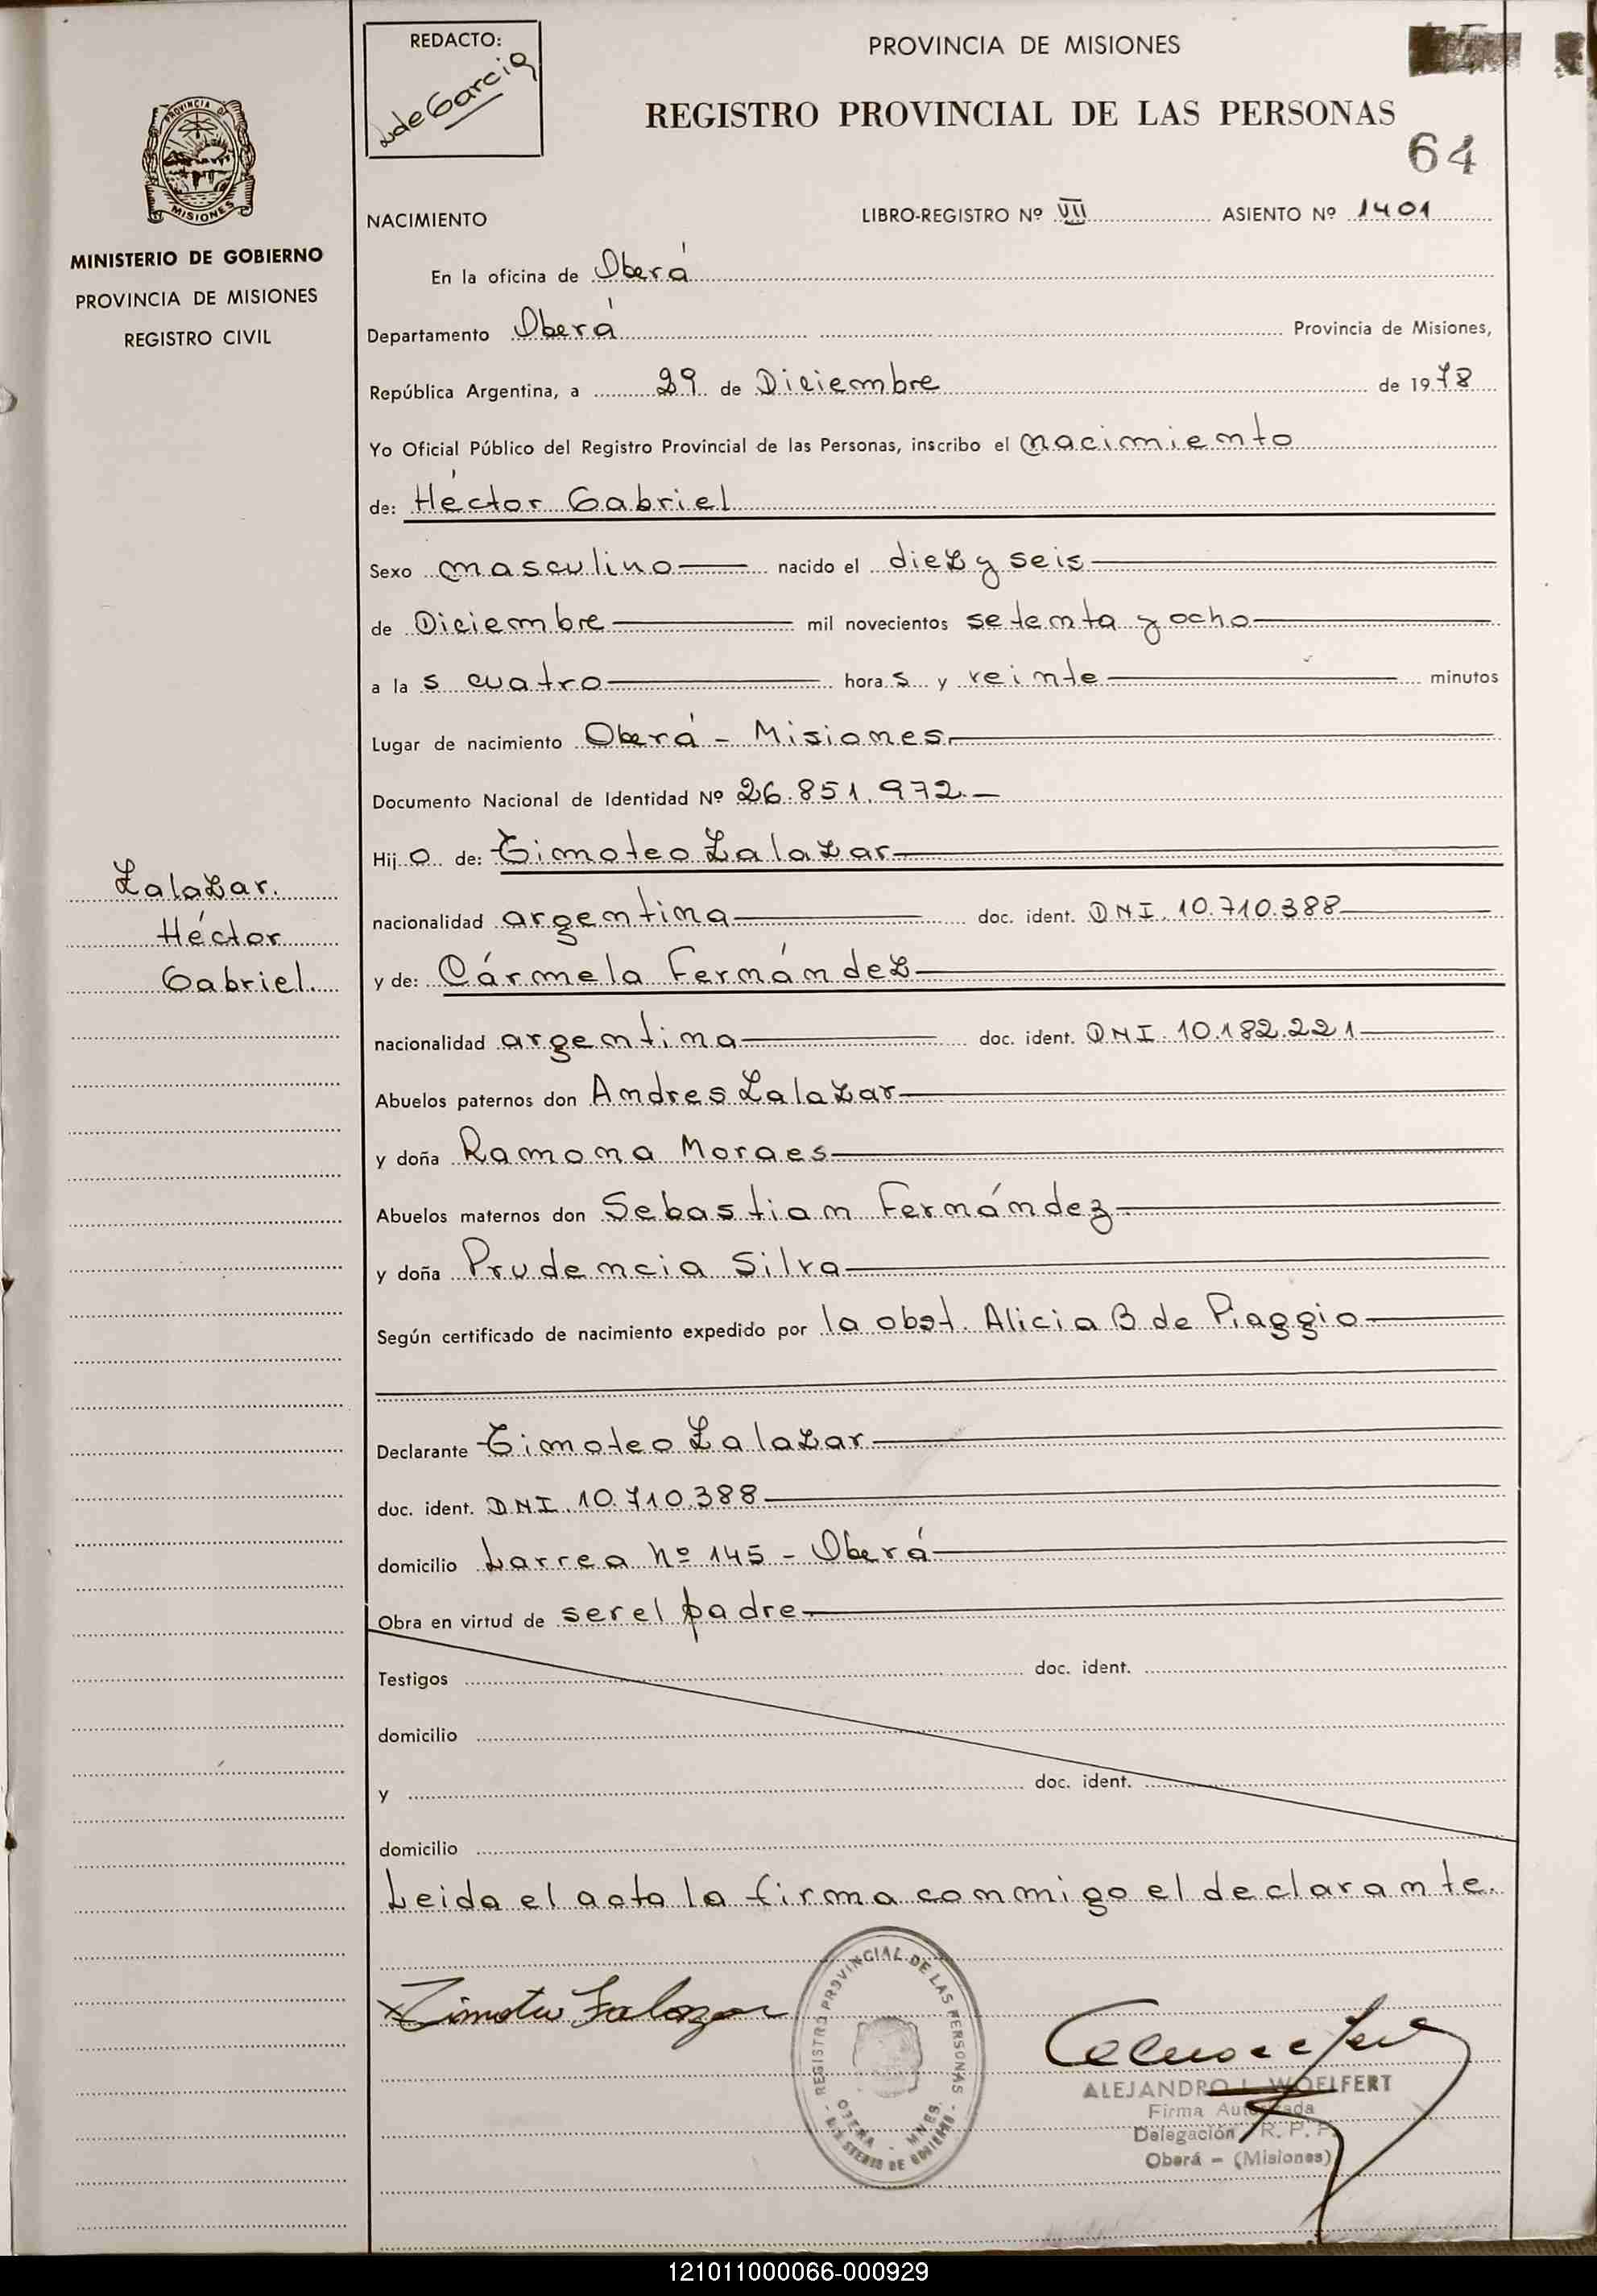 REDACTO:
L de Garcia
PROVINCIA DE MISIONES
REGISTRO PROVINCIAL DE LAS PERSONAS
64
PROVINCIA DE
MISIONES
MINISTERIO DE GOBIERNO
PROVINCIA DE MISIONES
REGISTRO CIVIL
NACIMIENTO LIBRO-REGISTRO Nº VII ASIENTO Nº 1401
En la oficina de Oberá
Departamento Oberá Provincia de Misiones,
República Argentina, a 29 de Diciembre de 1978
Yo Oficial Público del Registro Provincial de las Personas, inscribo el nacimiento
de: Héctor Gabriel
Sexo masculino nacido el diez y seis
de Diciembre mil novecientos setenta y ocho
a las cuatro horas y veinte minutos
Lugar de nacimiento Oberá - Misiones
Documento Nacional de Identidad Nº 26.851.972.-
Hijo de: Timoteo Zalazar
Zalazar.
Héctor
Gabriel.
nacionalidad argentina doc. ident. DNI. 10.710.388
y de: Cármela Fernández
nacionalidad argentina doc. ident. DNI. 10.182.221
Abuelos paternos don Andres Zalazar
y doña Ramona Moraes
Abuelos maternos don Sebastian Fernández
y doña Prudencia Silva
Según certificado de nacimiento expedido por la obst. Alicia B de Piaggio
Declarante Timoteo Zalazar
doc. ident. DNI. 10.710.388
domicilio Larrea Nº 145 - Oberá
Obra en virtud de ser el padre
Testigos doc. ident.
domicilio
y doc. ident.
domicilio
Leida el acta la firma conmigo el declarante.
Timoteo Zalazar
REGISTRO PROVINCIAL DE LAS PERSONAS
OBERA - MNES.
MINISTERIO DE GOBIERNO
ALEJANDRO L. WOELFERT
Firma Autorizada
Delegación R. P. P.
Oberá - (Misiones)
121011000066-000929